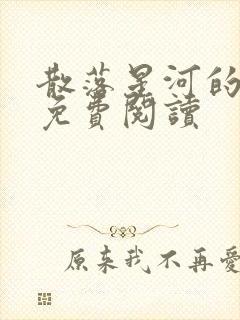 散落星河的
免費閱讀
原來我不再愛